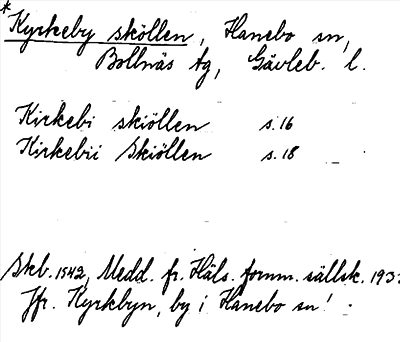 *Kyrkeby sköllen, Hanebo sn,
Bollnäs tg, Gävleb. l.
Kirkebi skiöllen s. 16
Kirkebii Skiöllen s. 18
Skb. 1542, Medd. fr. Häls. fornm. sällsk. 193
Jfr. Kyrkbyn, by i Hanebo sn!